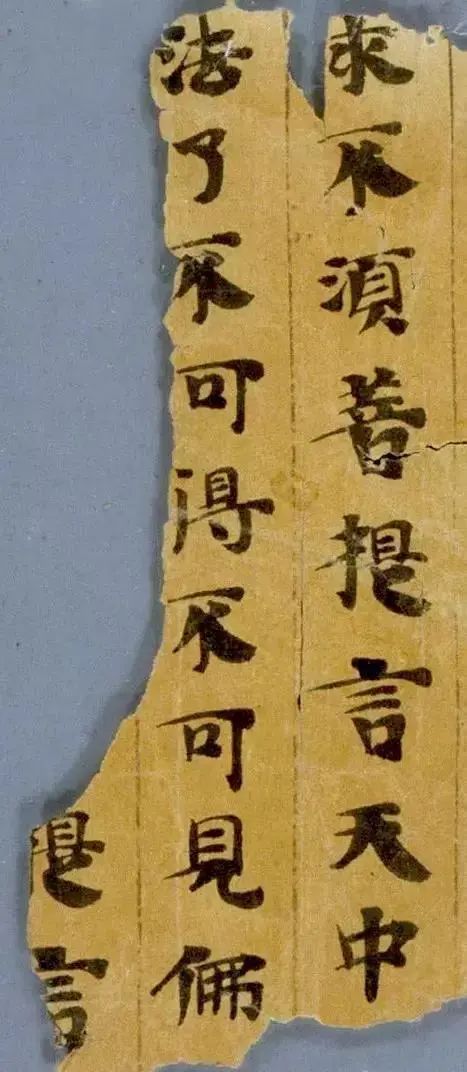 求不須菩提言天中
法了不可得不可見佛
提言